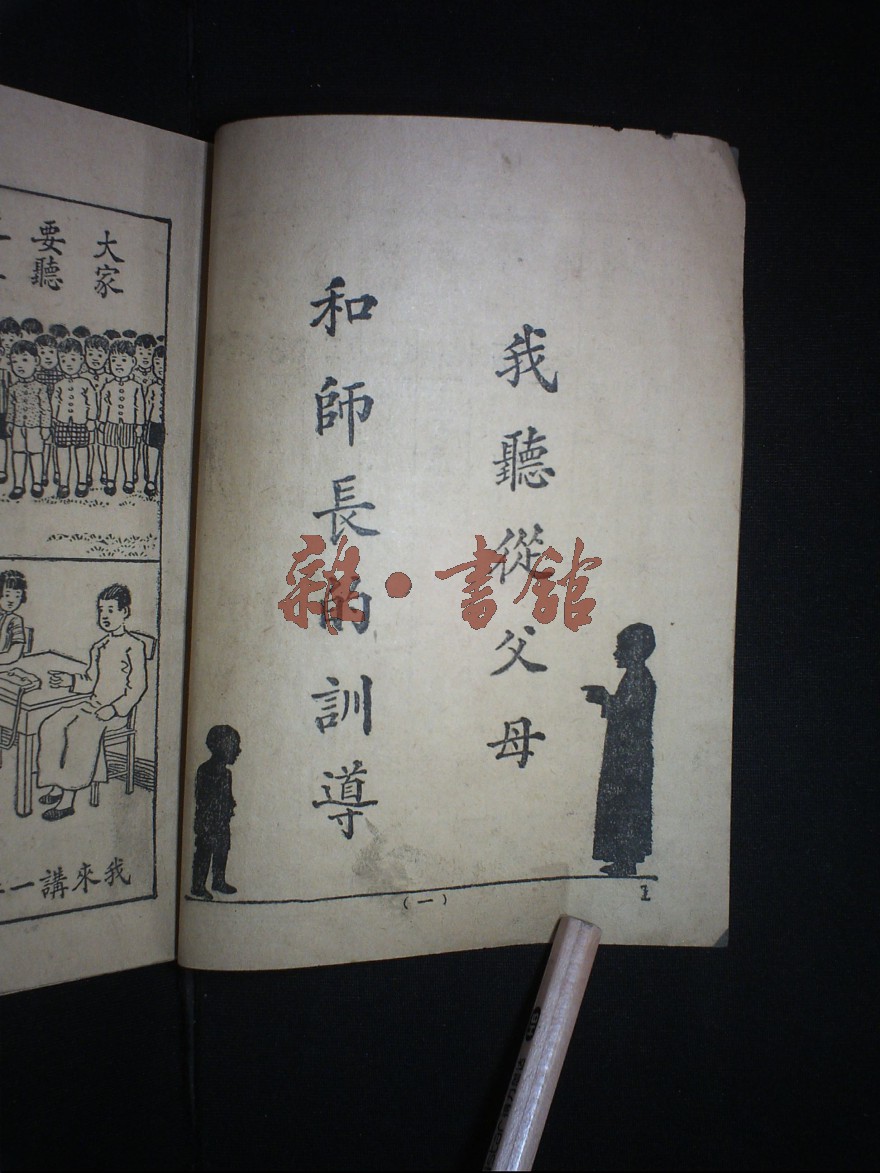 我聽從父母
和師長的訓導
(一)
1
大家
要聽
我來講一
雜·書館